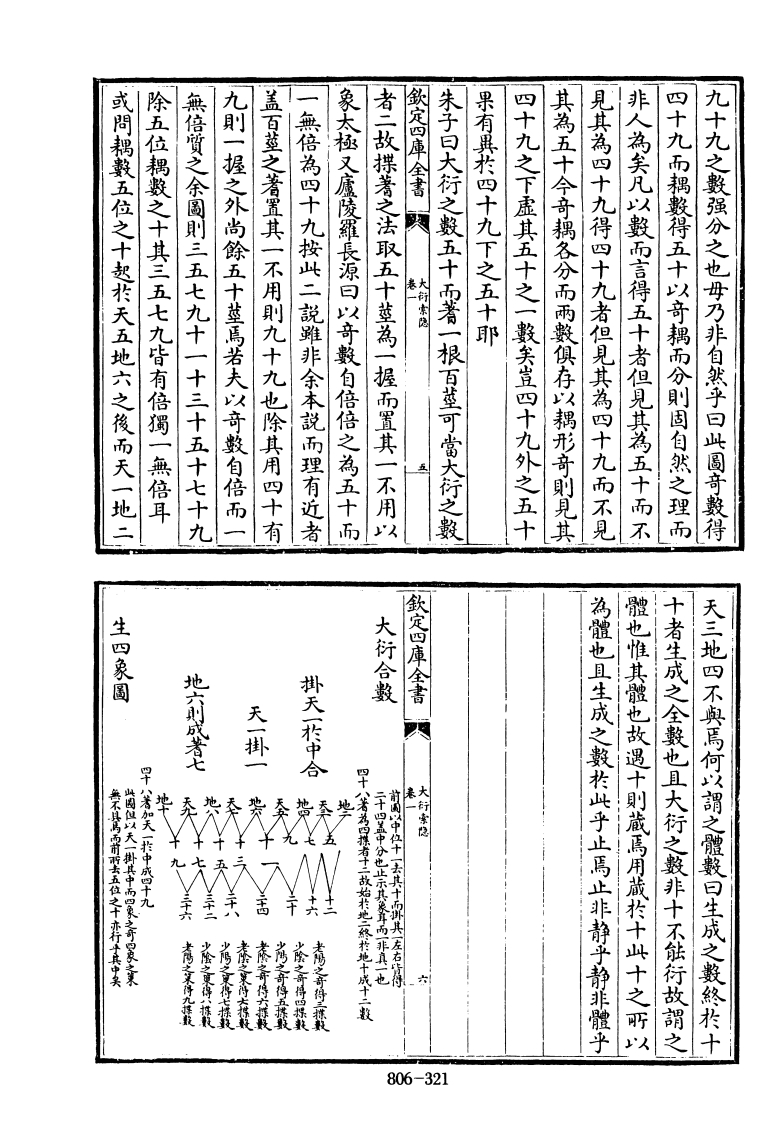 九十九之數强分之也毋乃非自然乎曰此圖奇數得
四十九而耦數得五十以奇耦而分則固自然之理而
非人為矣凡以數而言得五十者但見其為五十而不
見其為四十九得四十九者但見其為四十九而不見
其為五十今奇耦各分而兩數俱存以耦形奇則見其
四十九之下虛其五十之一數矣豈四十九外之五十
果有異於四十九下之五十耶
朱子曰大衍之數五十而蓍一根百莖可當大衍之數
欽定四庫全書
大衍索隱
卷一
五
者二故揲蓍之法取五十莖為一握而置其一不用以
象太極又廬陵羅長源曰以奇數自倍倍之為五十而
一無倍為四十九按此二說雖非余本説而理有近者
盖百莖之蓍置其一不用則九十九也除其用四十有
九則一握之外尚餘五十莖焉若夫以奇數自倍而一
無倍質之余圖則三五七九十一十三十五十七十九
除五位耦數之十其三五七九皆有倍獨一無倍耳
或問耦數五位之十起於天五地六之後而天一地二
天三地四不與焉何以謂之體數曰生成之數終於十
十者生成之全數也且大衍之數非十不能衍故謂之
體也惟其體也故遇十則蔵焉用蔵於十此十之所以
為體也且生成之數於此乎止焉止非靜乎靜非體乎
欽定四庫全書
大衍索隱
卷一
六
大衍合數
前圖以中位十一去其十而掛其一左右皆得
二十四盖中分也止示其象耳而非真一也
四十八蓍為四揲者十二故始於地二終於地十成十二數
掛天一於中合
天一掛一
地六則成蓍七
地二
天三
地四
天五
地六
天七
地八
天九
地十
五
七
九
十一
十三
十五
十七
十九
十二
十六
二十
二十四
二十八
三十二
三十六
老陽之奇得三揲數
少陰之奇得四揲數
少陽之奇得五揲數
老陰之奇得六揲數
老陰之䇿得六揲數
少陽之䇿得七揲數
少陰之䇿得八揲數
老陽之䇿得九揲數
四十八蓍加天一於中成四十九
此圖但以天一掛其中而四象之奇四象之䇿
無不具焉而前所去五位之十亦行乎其中矣
生四象圖
806-321